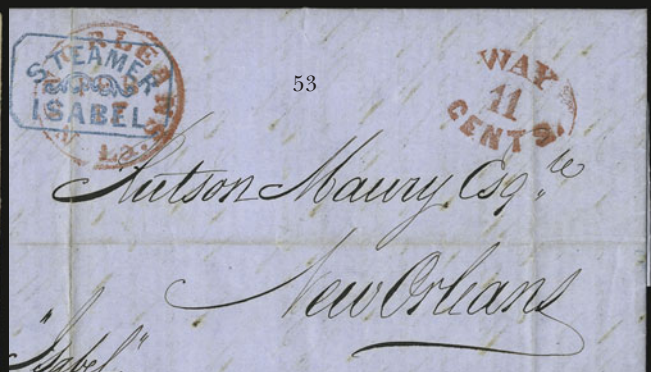 STEAMER
ISABEL
53
WAY
11
CENTS
Rutson Maury Esq.re
New Orleans
"Isabel"